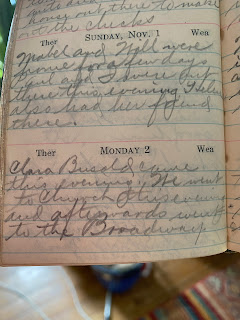 house out there to make
out the checks
Ther SUNDAY, NOV. 1 Wea
Mabel and Will were
home for a few days
and I were out
there this evening Helen
also had her friend
there.
Ther MONDAY 2 Wea
Clara came
this evening. We went
to Church this evening
and afterwards went
to the Broadway